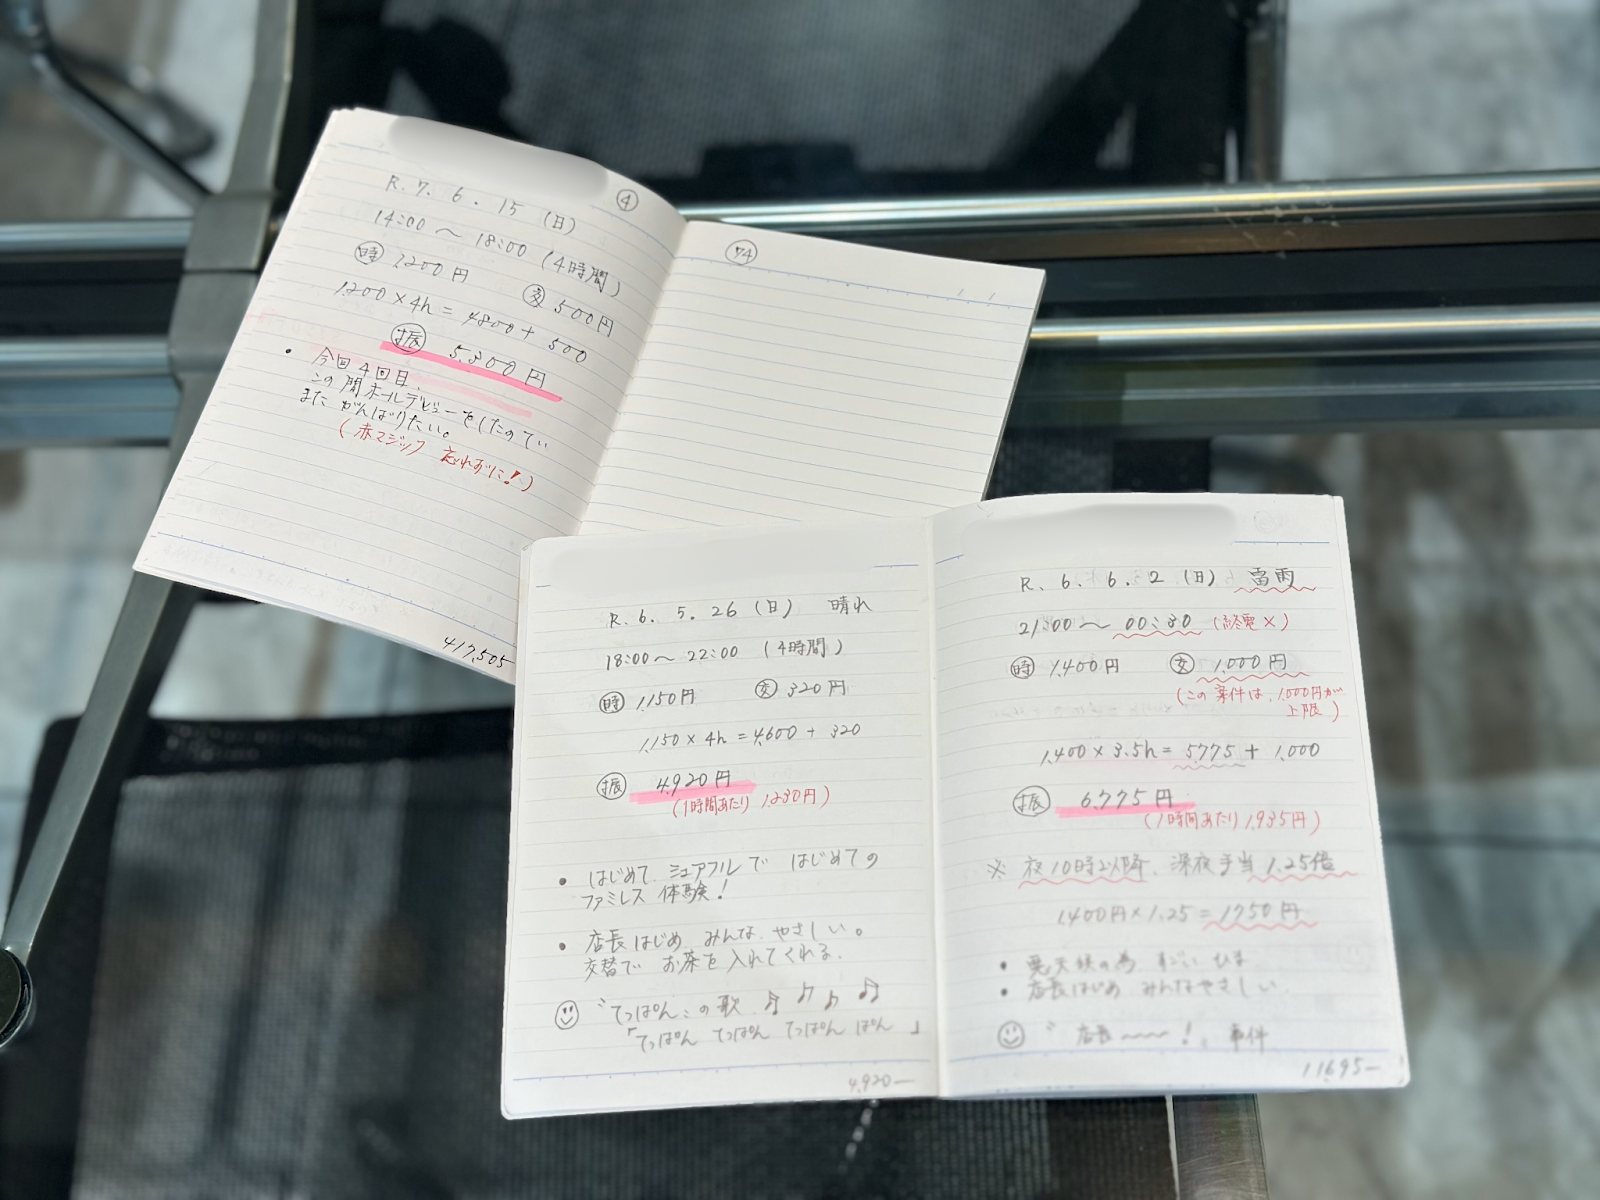 ④
R. 7. 6. 15 (日)
14:00 〜 18:00 (4時間)
㊐時 1,200円 交 500円
1,200 × 4h = 4,800 + 500
振 5,300円
• 今回4回目、
この間ホールデビューをしたのでい
また がんばりたい。
(赤マジック 忘れずに!)
417,505
74
R. 6. 5. 26 (日) 晴れ
18:00〜22:00 (4時間)
時 1,150円 交 320円
1,150 × 4h = 4,600 + 320
振 4,920円
(1時間あたり 1,230円)
• はじめて シェアフルで はじめての
ファミレス 体験!
• 店長はじめ みんな やさしい。
交替で お茶を 入れてくれる.
“てっぱん〟の歌
「てっぱん てっぱん てっぱん ぱん 」
4,920—
R. 6. 6. 2 (日) 雷雨
21:00〜00:30 (終電×)
時 1,400円 交 1,000円
(この案件は、1,000円が
上限)
1,400 × 3.5h = 5,775 + 1,000
振 6,775円
(1時間あたり 1,935円)
※ 夜10時以降、深夜手当 1.25倍
1,400円×1.25 = 1750円
• 悪天候の為 すごい ひま
• 店長はじめ みんなやさしい
“ 店長〜〜! 〟事件
11,695—